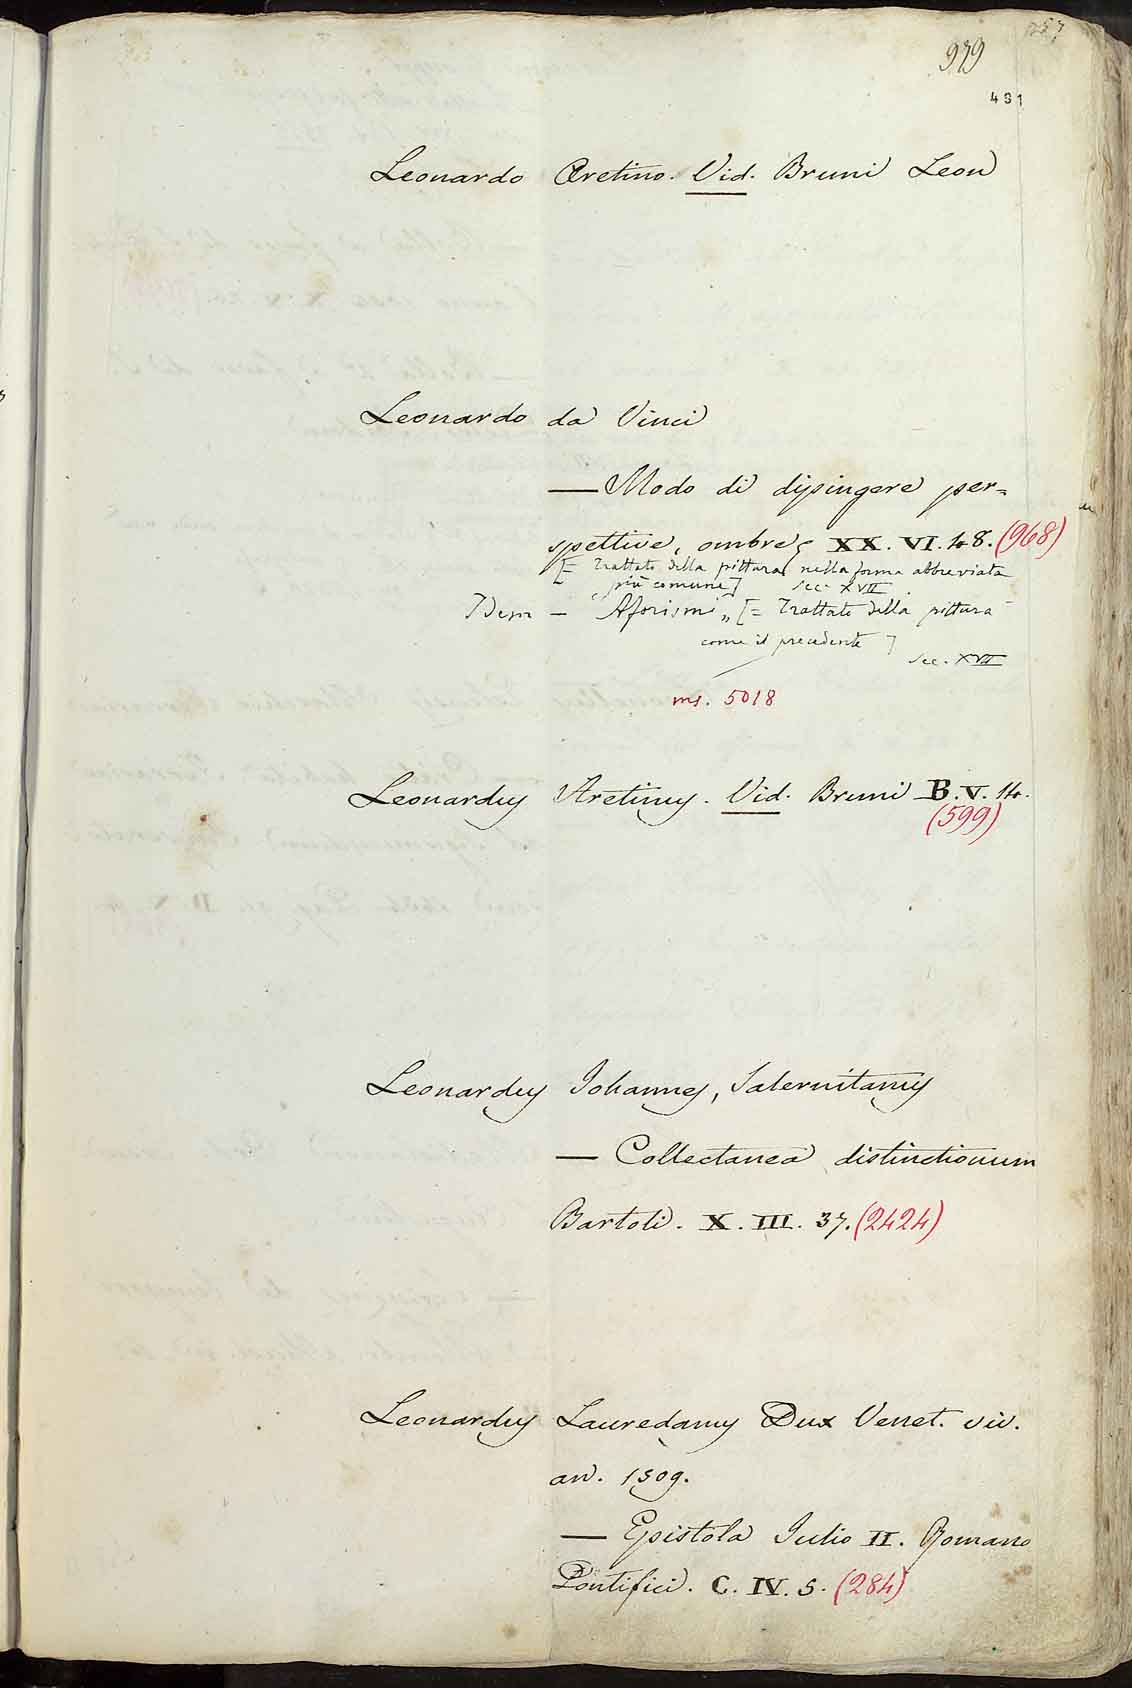 257
979
491
Leonardo Aretino. Vid. Bruni Leon
Leonardo da Vinci
— Modo di dipingere per=
spettive, ombre, XX. VI. 48. (968)
[= Trattato della pittura nella forma abbreviata
più comune] sec. XVII
Idem — Aforismi „ [= Trattato della pittura
come il precedente]
sec. XVII
ms. 5018
Leonardus Aretinus. Vid. Bruni B. V. 14.
(599)
Leonardus Iohannes, Salernitanus
— Collectanea distinctionum
Bartoli. X. III. 37. (2424)
Leonardus Lauredanus Dux Venet. viv.
an. 1509.
— Epistola Julio II. Romano
Pontifici. C. IV. 5. (284)